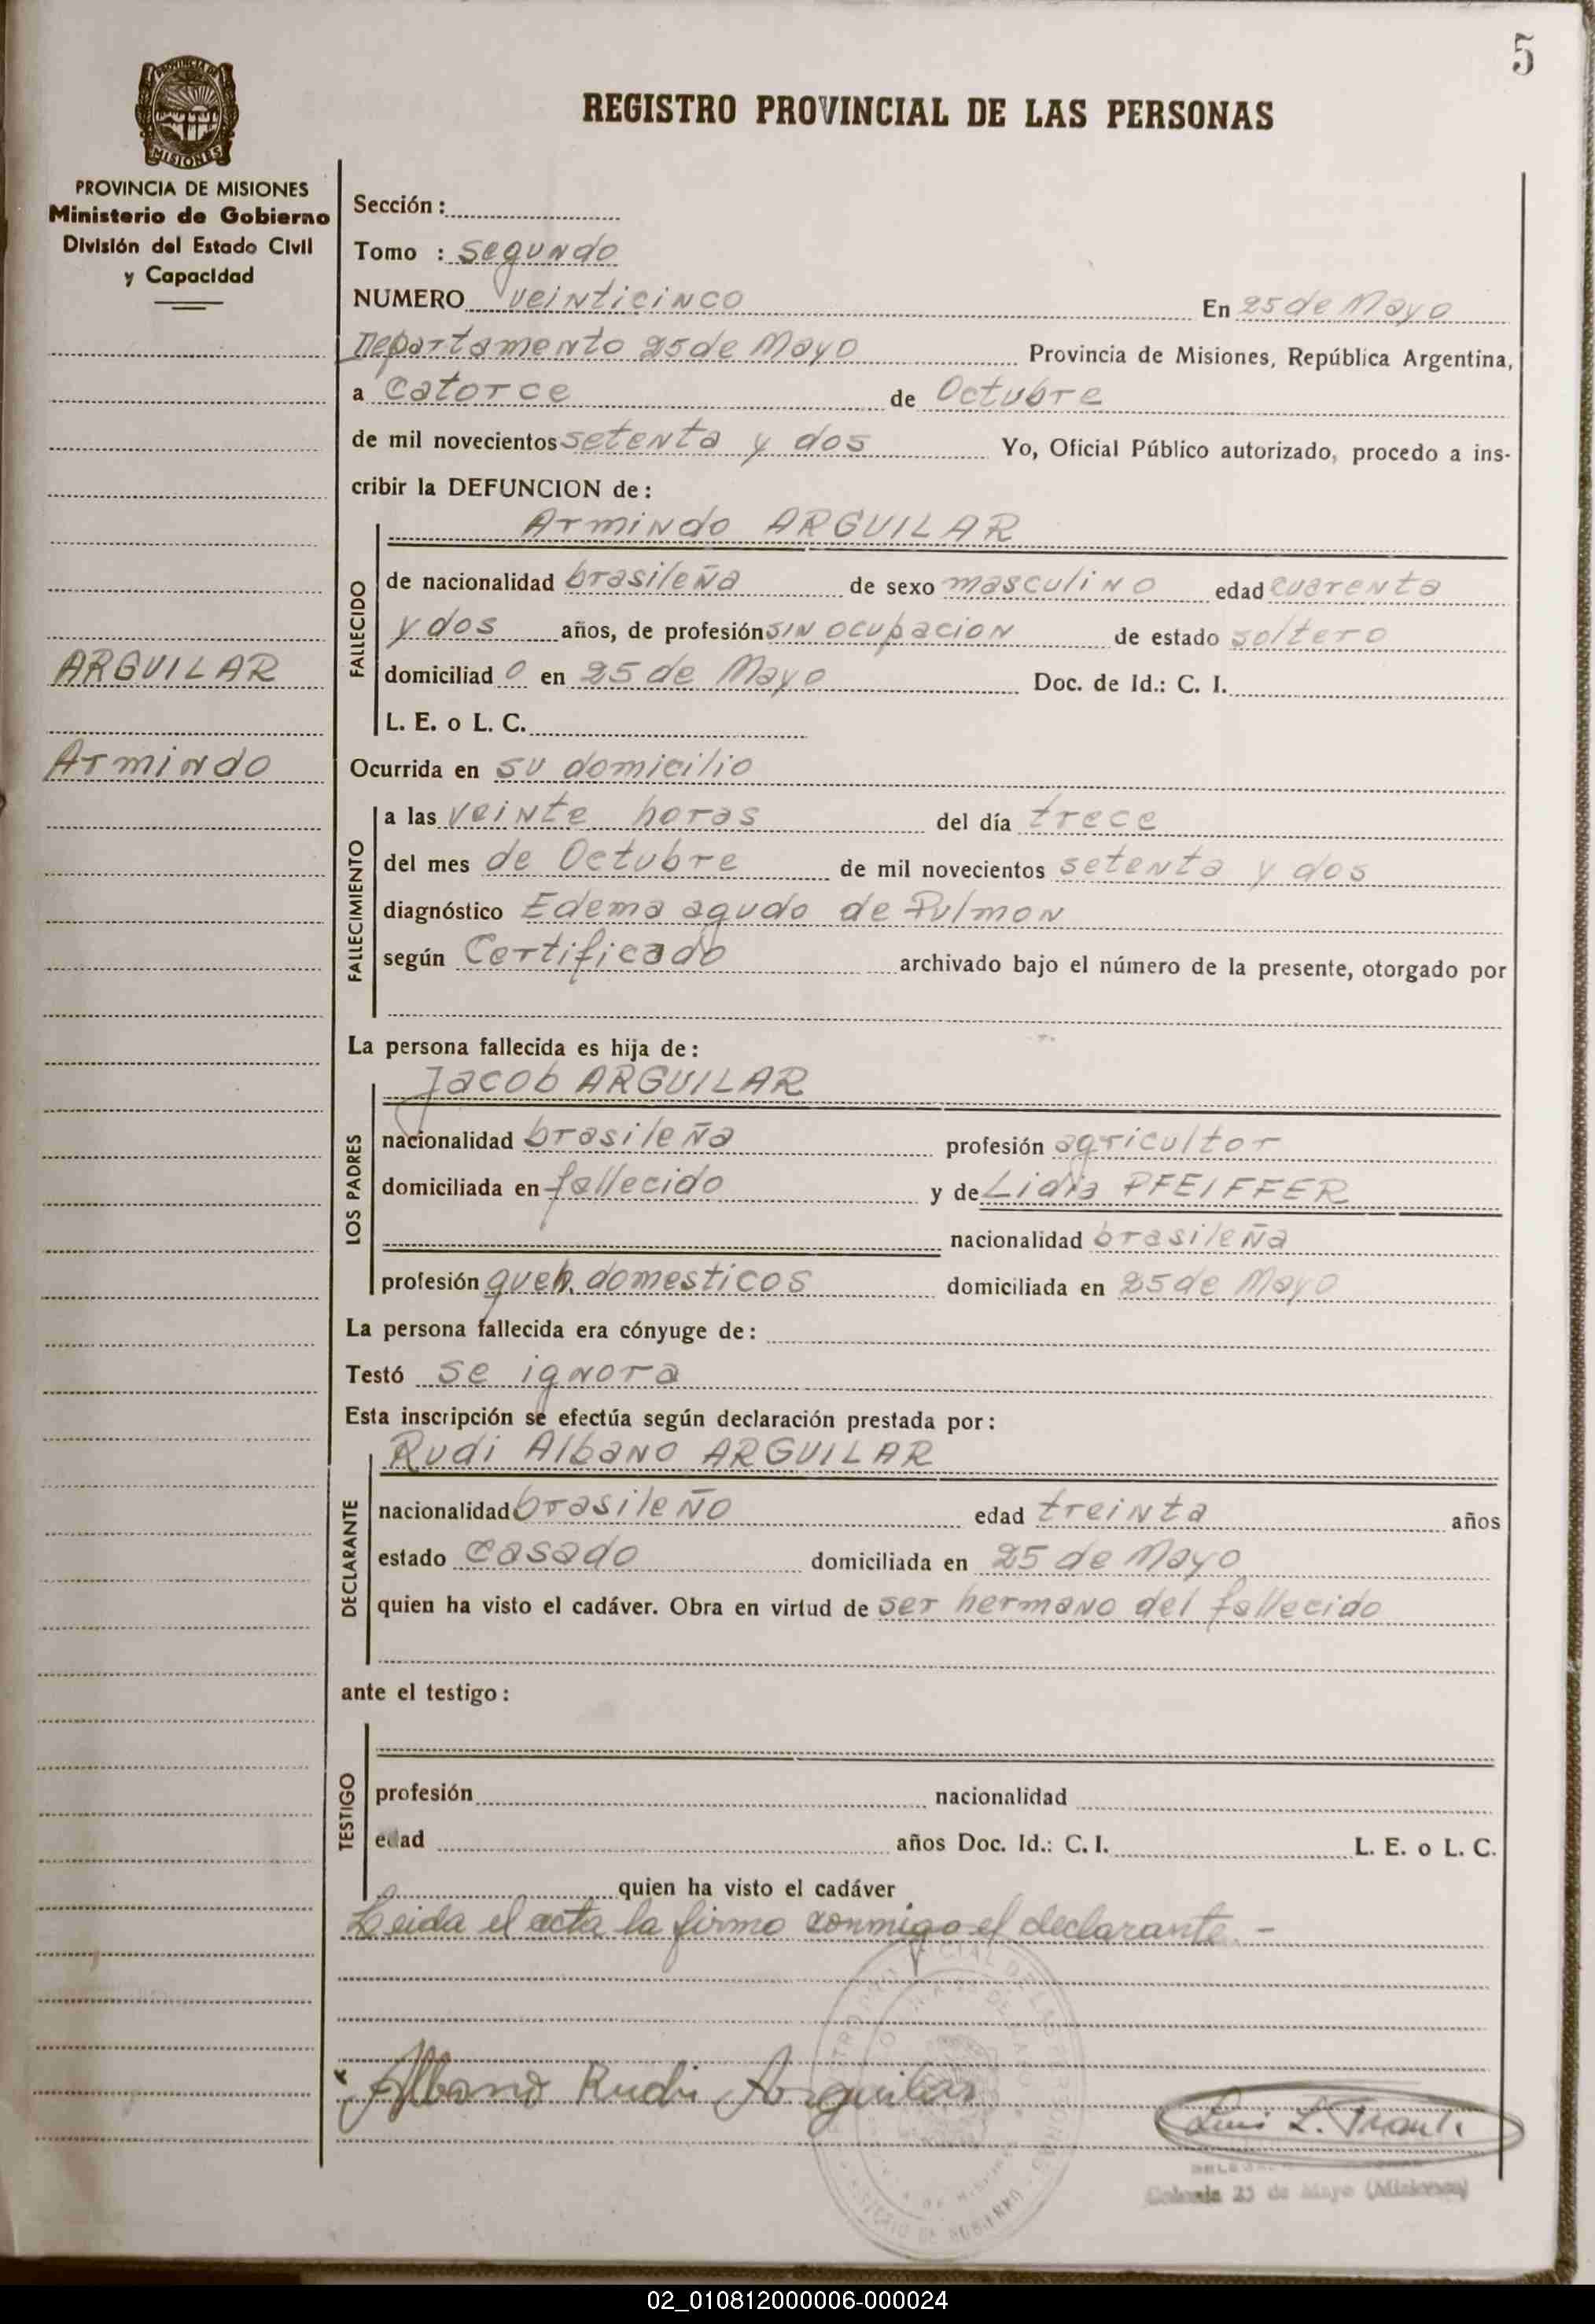 5
REGISTRO PROVINCIAL DE LAS PERSONAS
PROVINCIA DE
MISIONES
PROVINCIA DE MISIONES
Ministerio de Gobierno
División del Estado Civil
y Capacidad
ARGUILAR
Armindo
Sección :
Tomo : segundo
NUMERO veinticinco En 25 de Mayo
Departamento 25 de Mayo Provincia de Misiones, República Argentina,
a catorce de Octubre
de mil novecientos setenta y dos Yo, Oficial Público autorizado, procedo a ins-
cribir la DEFUNCION de :
Armindo ARGUILAR
FALLECIDO
de nacionalidad brasileña de sexo masculino edad cuarenta
y dos años, de profesión sin ocupacion de estado soltero
domiciliad o en 25 de Mayo Doc. de Id.: C. I.
L. E. o L. C.
Ocurrida en su domicilio
FALLECIMIENTO
a las veinte horas del día trece
del mes de Octubre de mil novecientos setenta y dos
diagnóstico Edema agudo de Pulmon
según Certificado archivado bajo el número de la presente, otorgado por
La persona fallecida es hija de :
LOS PADRES
Jacob ARGUILAR
nacionalidad brasileña profesión agricultor
domiciliada en fallecido y de Lidia PFEIFFER
nacionalidad brasileña
profesión queh. domesticos domiciliada en 25 de Mayo
La persona fallecida era cónyuge de :
Testó se ignora
Esta inscripción se efectúa según declaración prestada por :
DECLARANTE
Rudi Albano ARGUILAR
nacionalidad brasileño edad treinta años
estado casado domiciliada en 25 de Mayo
quien ha visto el cadáver. Obra en virtud de ser hermano del fallecido
ante el testigo :
TESTIGO
profesión nacionalidad
edad años Doc. Id.: C. I. L. E. o L. C.
quien ha visto el cadáver
Leida el acta la firmo conmigo el declarante. -
x Albano Rudi Arguilar
Luis L.
Colonia 25 de Mayo (Misiones)
02_010812000006-000024